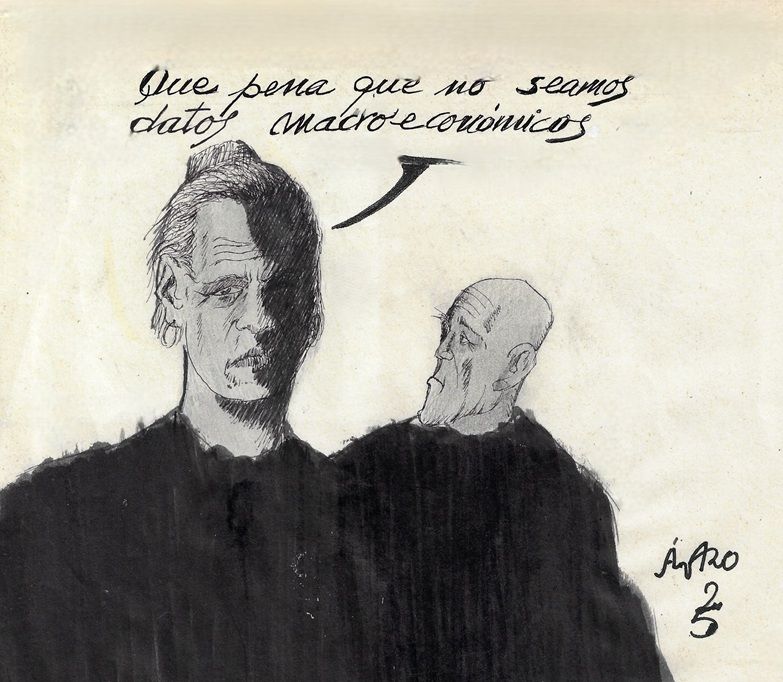 Que pena que no seamos
datos macroeconómicos
25